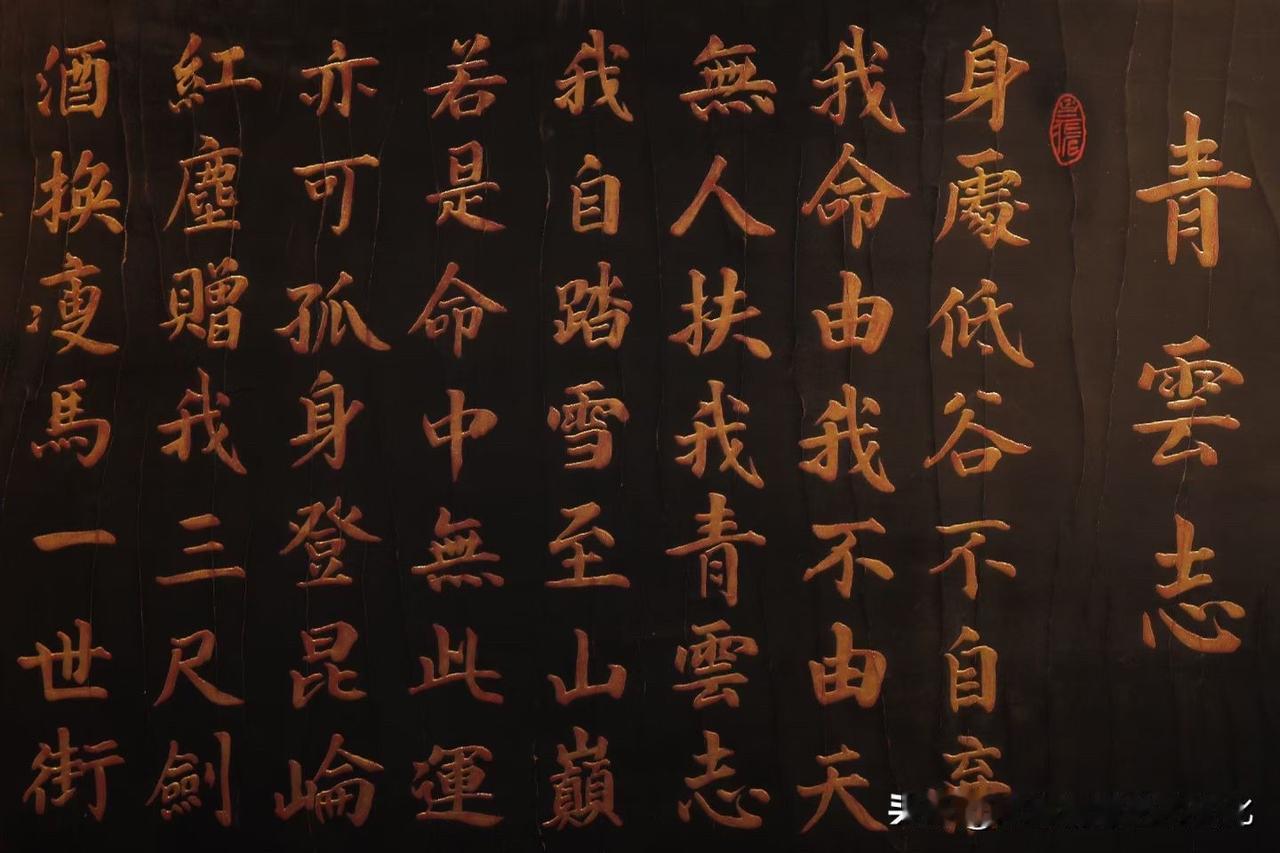 青雲志
身處低谷不自棄
我命由我不由天
無人扶我青雲志
我自踏雪至山巔
若是命中無此運
亦可孤身登昆崘
紅塵贈我三尺劍
酒換瘦馬一世街